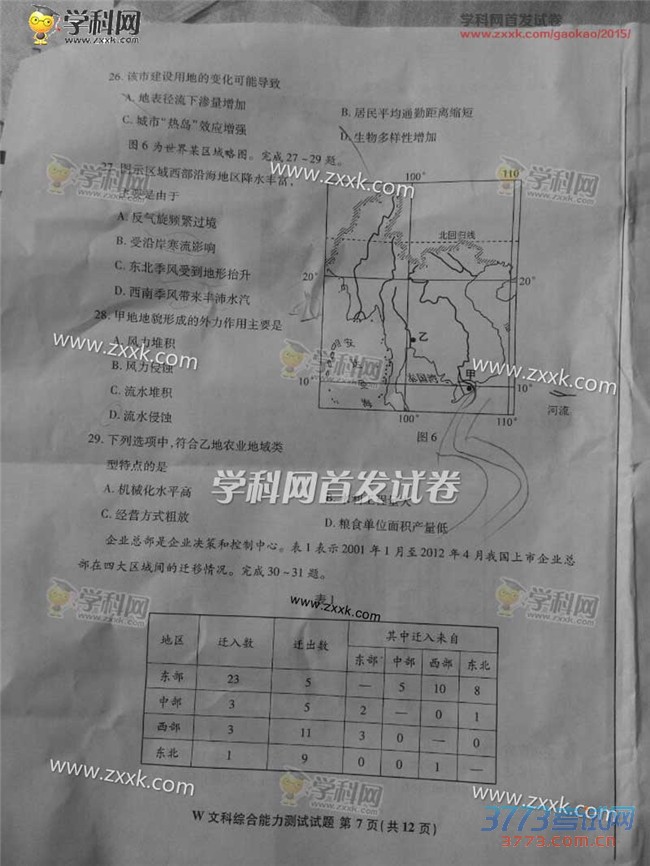 学科网
www.zxxk.com
学科网首发试卷
www.zxxk.com/gaokao/2015/
26. 该市建设用地的变化可能导致
A. 地表径流下渗量增加
B. 居民平均通勤距离缩短
C. 城市“热岛”效应增强
D. 生物多样性增加
图6为世界某区域略图。完成27~29题。
27. 图示区域西部沿海地区降水丰富,
主要是由于
A. 反气旋频繁过境
B. 受沿岸寒流影响
C. 东北季风受到地形抬升
D. 西南季风带来丰沛水汽
28. 甲地地貌形成的外力作用主要是
A. 风力堆积
B. 风力侵蚀
C. 流水堆积
D. 流水侵蚀
29. 下列选项中,符合乙地农业地域类
型特点的是
A. 机械化水平高
C. 经营方式粗放
D. 粮食单位面积产量低
100°
110°
北回归线
20°
20°
乙
泰国湾
甲
10°
10°
海
100°
110°
河流
图6
学科网首发试卷
企业总部是企业决策和控制中心。表1表示2001年1月至2012年4月我国上市企业总
部在四大区域间的迁移情况。完成30~31题。
表1
地区 迁入数 迁出数 其中迁入来自
东部 中部 西部 东北
东部 23 5 — 5 10 8
中部 3 5 2 — 0 1
西部 3 11 3 0 — 0
东北 1 9 0 0 1 —
W 文科综合能力测试试题 第7页(共12页)
www.zxxk.com
学科网
3773考试网
3773.com.cn